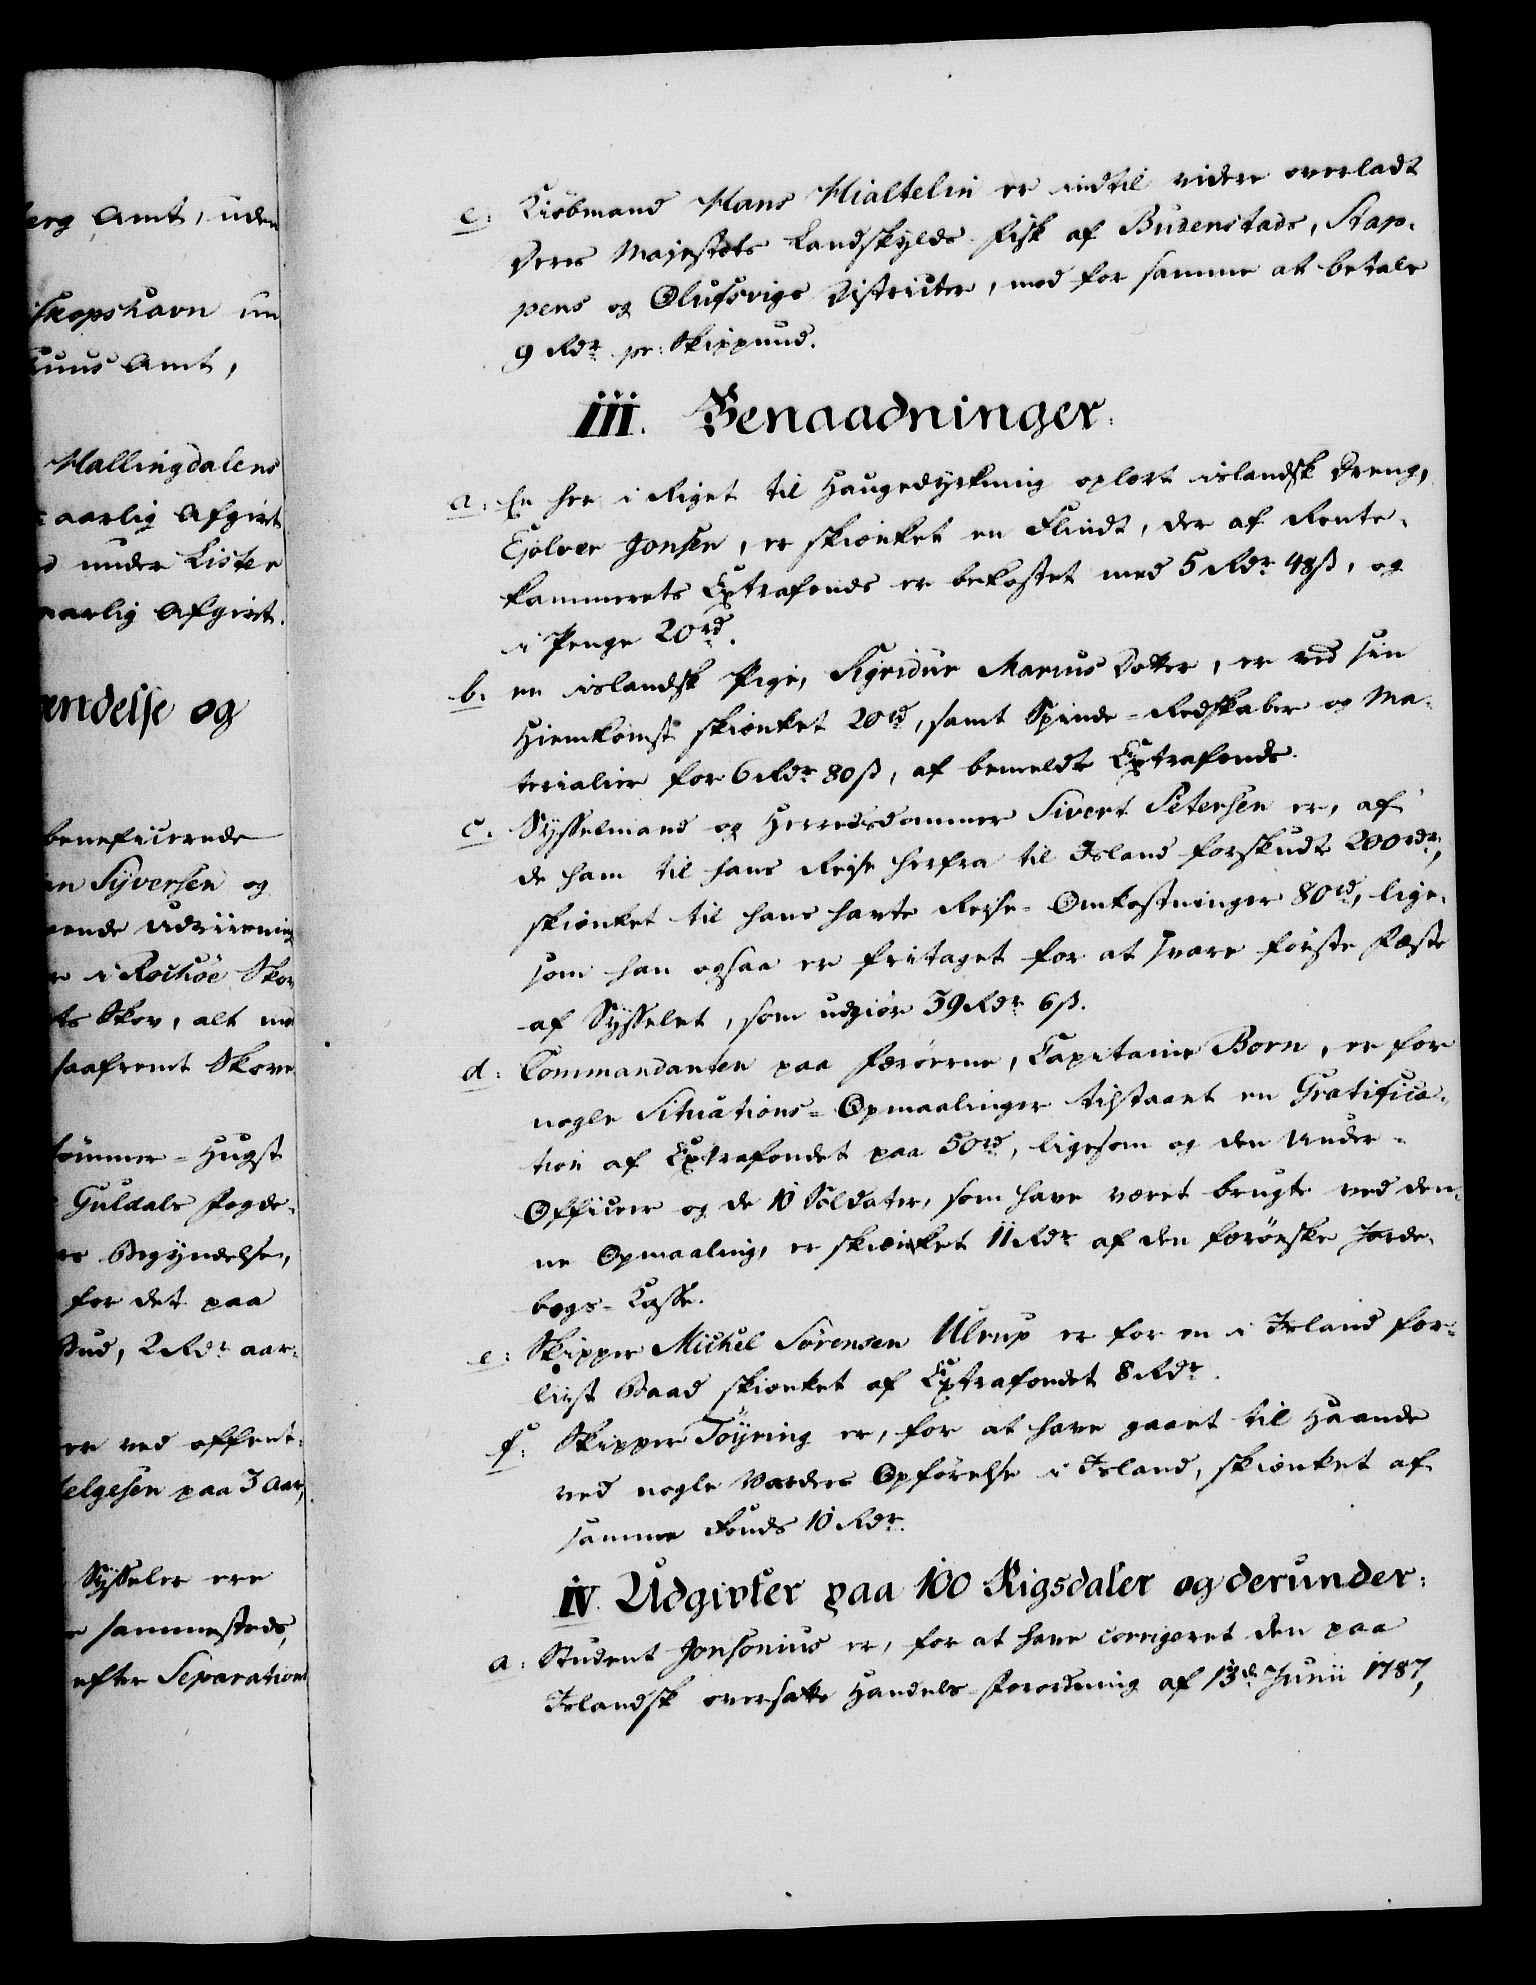 erg Amt, uden
skopshavn un
huus Amt,
Hallingdalens
aarlig Afgivt
d under Lister
aarlig Afgivt.
endelse og
beneficerede
an Syversen og
ende Udviisning
r i Rochöe Skov
ts Skov, alt mod
saafremt Skove
tömmer-Hugst
Guldals Fogde-
rs Begyndelse,
for det paa
Bud, 2 Rdr aar-
er ved offent-
elgesen paa 3 Aar,
Sysseler ere
sammesteds,
efter Separations
e: Kiöbmand Hans Hialtelin er indtil videre overladt
Deres Majestets Landskylds-Fisk af Budenstads, Stap-
pens og Olufsvigs Districter, mod for samme at betale
9 Rdr pr: Skippund.
III. Benaadninger.
a: En her i Riget til Haugedyrkning oplært islandsk Dreng,
Ejolver Jonsen, er skienket en Flindt, der af Rente-
kammerets Extrafonds er bekostet med 5 Rdr 48 ß, og
i Penge 20 rd.
b. en islandsk Pige, Sigridur Marcus Dotter, er ved sin
Hiemkomst skienket 20 rd, samt Spinde-Redskaber og Ma-
terialier for 6 Rdr 80 ß, af bemeldte Extrafonds.
c. Sysselmand og Herredsdommer Sivert Petersen er, af
de ham til hans Reise herfra til Island forskudte 200 rdr,
skienket til hans havte Reise-Omkostninger 80 rd, lige-
som han ogsaa er fritaget for at svare förste Fæste
af Sysselet, som udgiör 39 Rdr 6 ß.
d: Commandanten paa Færöerne, Capitaine Born, er for
nogle Situations-Opmaalinger tilstaaet en Gratifica-
tion af Extrafondet paa 50 rd, ligesom og den Under-
Officeer og de 10 Soldater, som have været brugte ved den-
ne Opmaaling, er skienket 11 Rdr af den færöeske Jorde-
bogs-Casse.
e: Skipper Michel Sörensen Ulrup er for en i Island for-
liist Baad skienket af Extrafondet 8 Rdr.
f: Skipper Töyring er, for at have gaaet til Haande
ved nogle Varders Opförelse i Island, skienket af
samme Fonds 10 Rdr.
IV. Udgivter paa 100 Rigsdaler og derunder:
a: Student Jonsonius er, for at have corrigeret den paa
Islandsk oversatte Handels-Forordning af 13de Junii 1787,